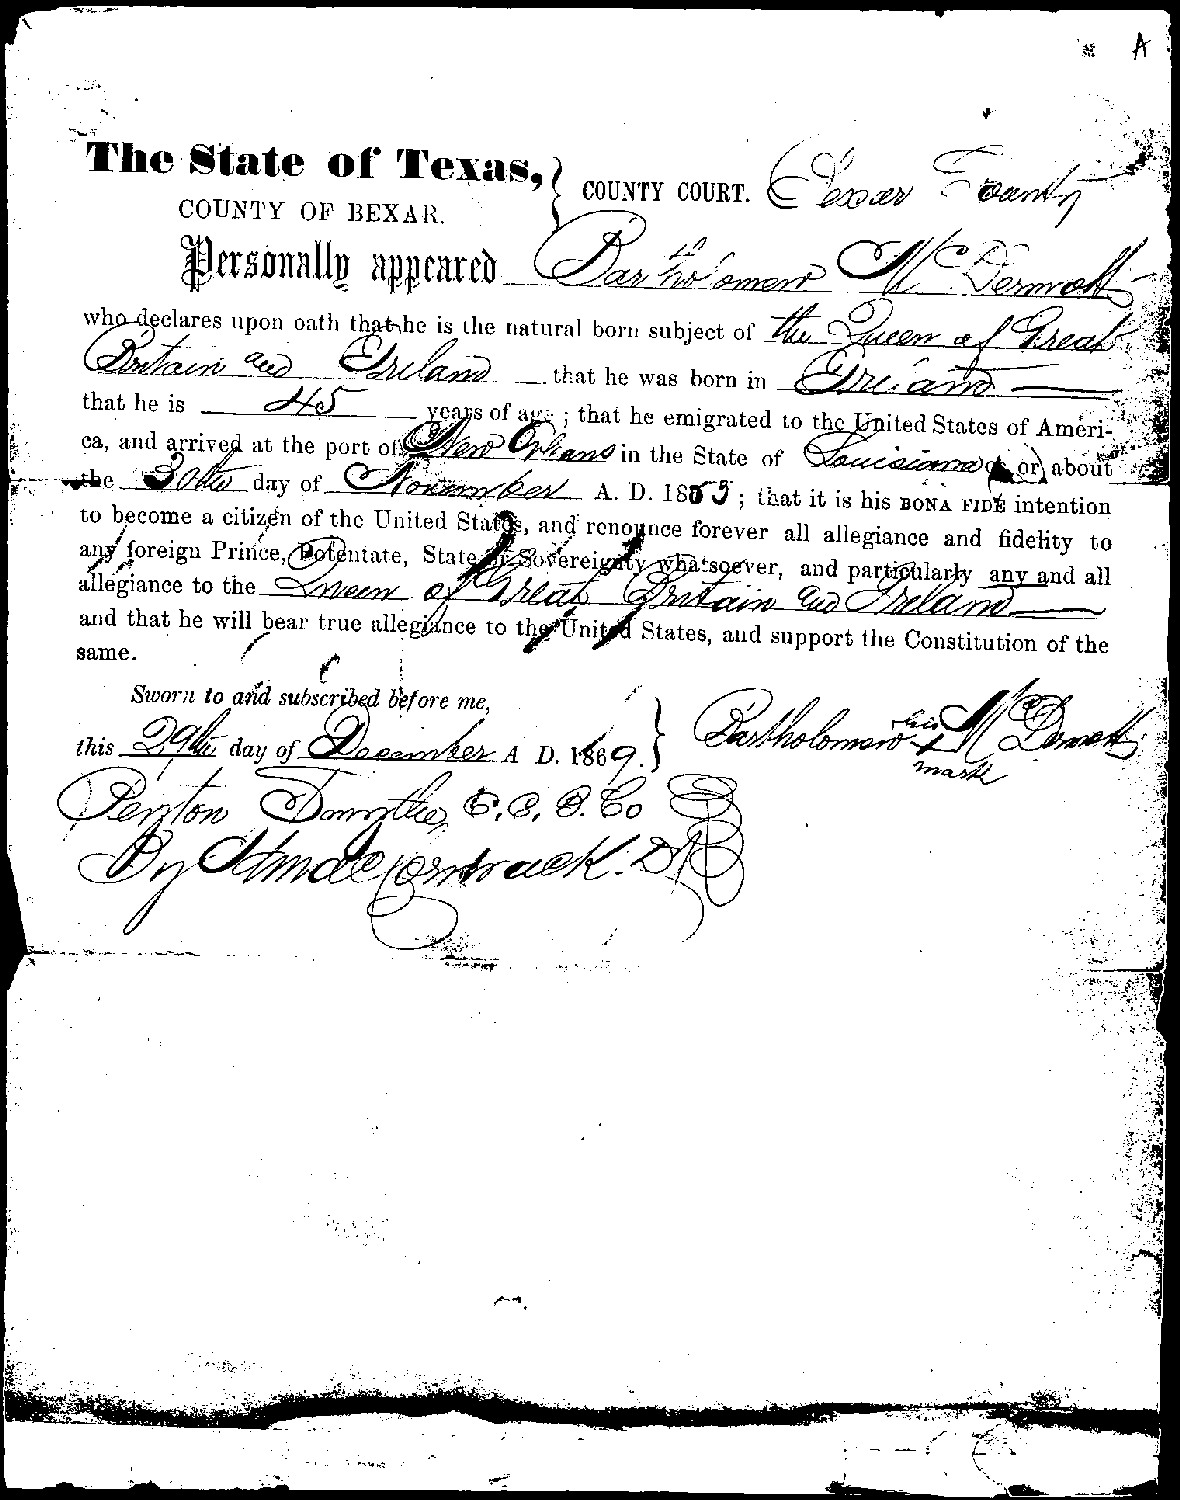 A
The State of Texas, } COUNTY COURT. Bexar County
COUNTY OF BEXAR.
Personally appeared Bartholomew McDermott
who declares upon oath that he is the natural born subject of the Queen of Great
Britain and Ireland — that he was born in Ireland —
that he is — 45 — years of age ; that he emigrated to the United States of Ameri-
ca, and arrived at the port of New Orleans in the State of Louisiana or) about
the 30th day of November A. D. 1855 ; that it is his BONA FIDE intention
to become a citizen of the United States, and renounce forever all allegiance and fidelity to
any foreign Prince, Potentate, State or Sovereignty whatsoever, and particularly any and all
allegiance to the Queen of Great Britain and Ireland —
and that he will bear true allegiance to the United States, and support the Constitution of the
same.
Sworn to and subscribed before me,
this 29th day of December A D. 1869. } Bartholomew his x mark McDermott
Penton C. C. B. Co
By